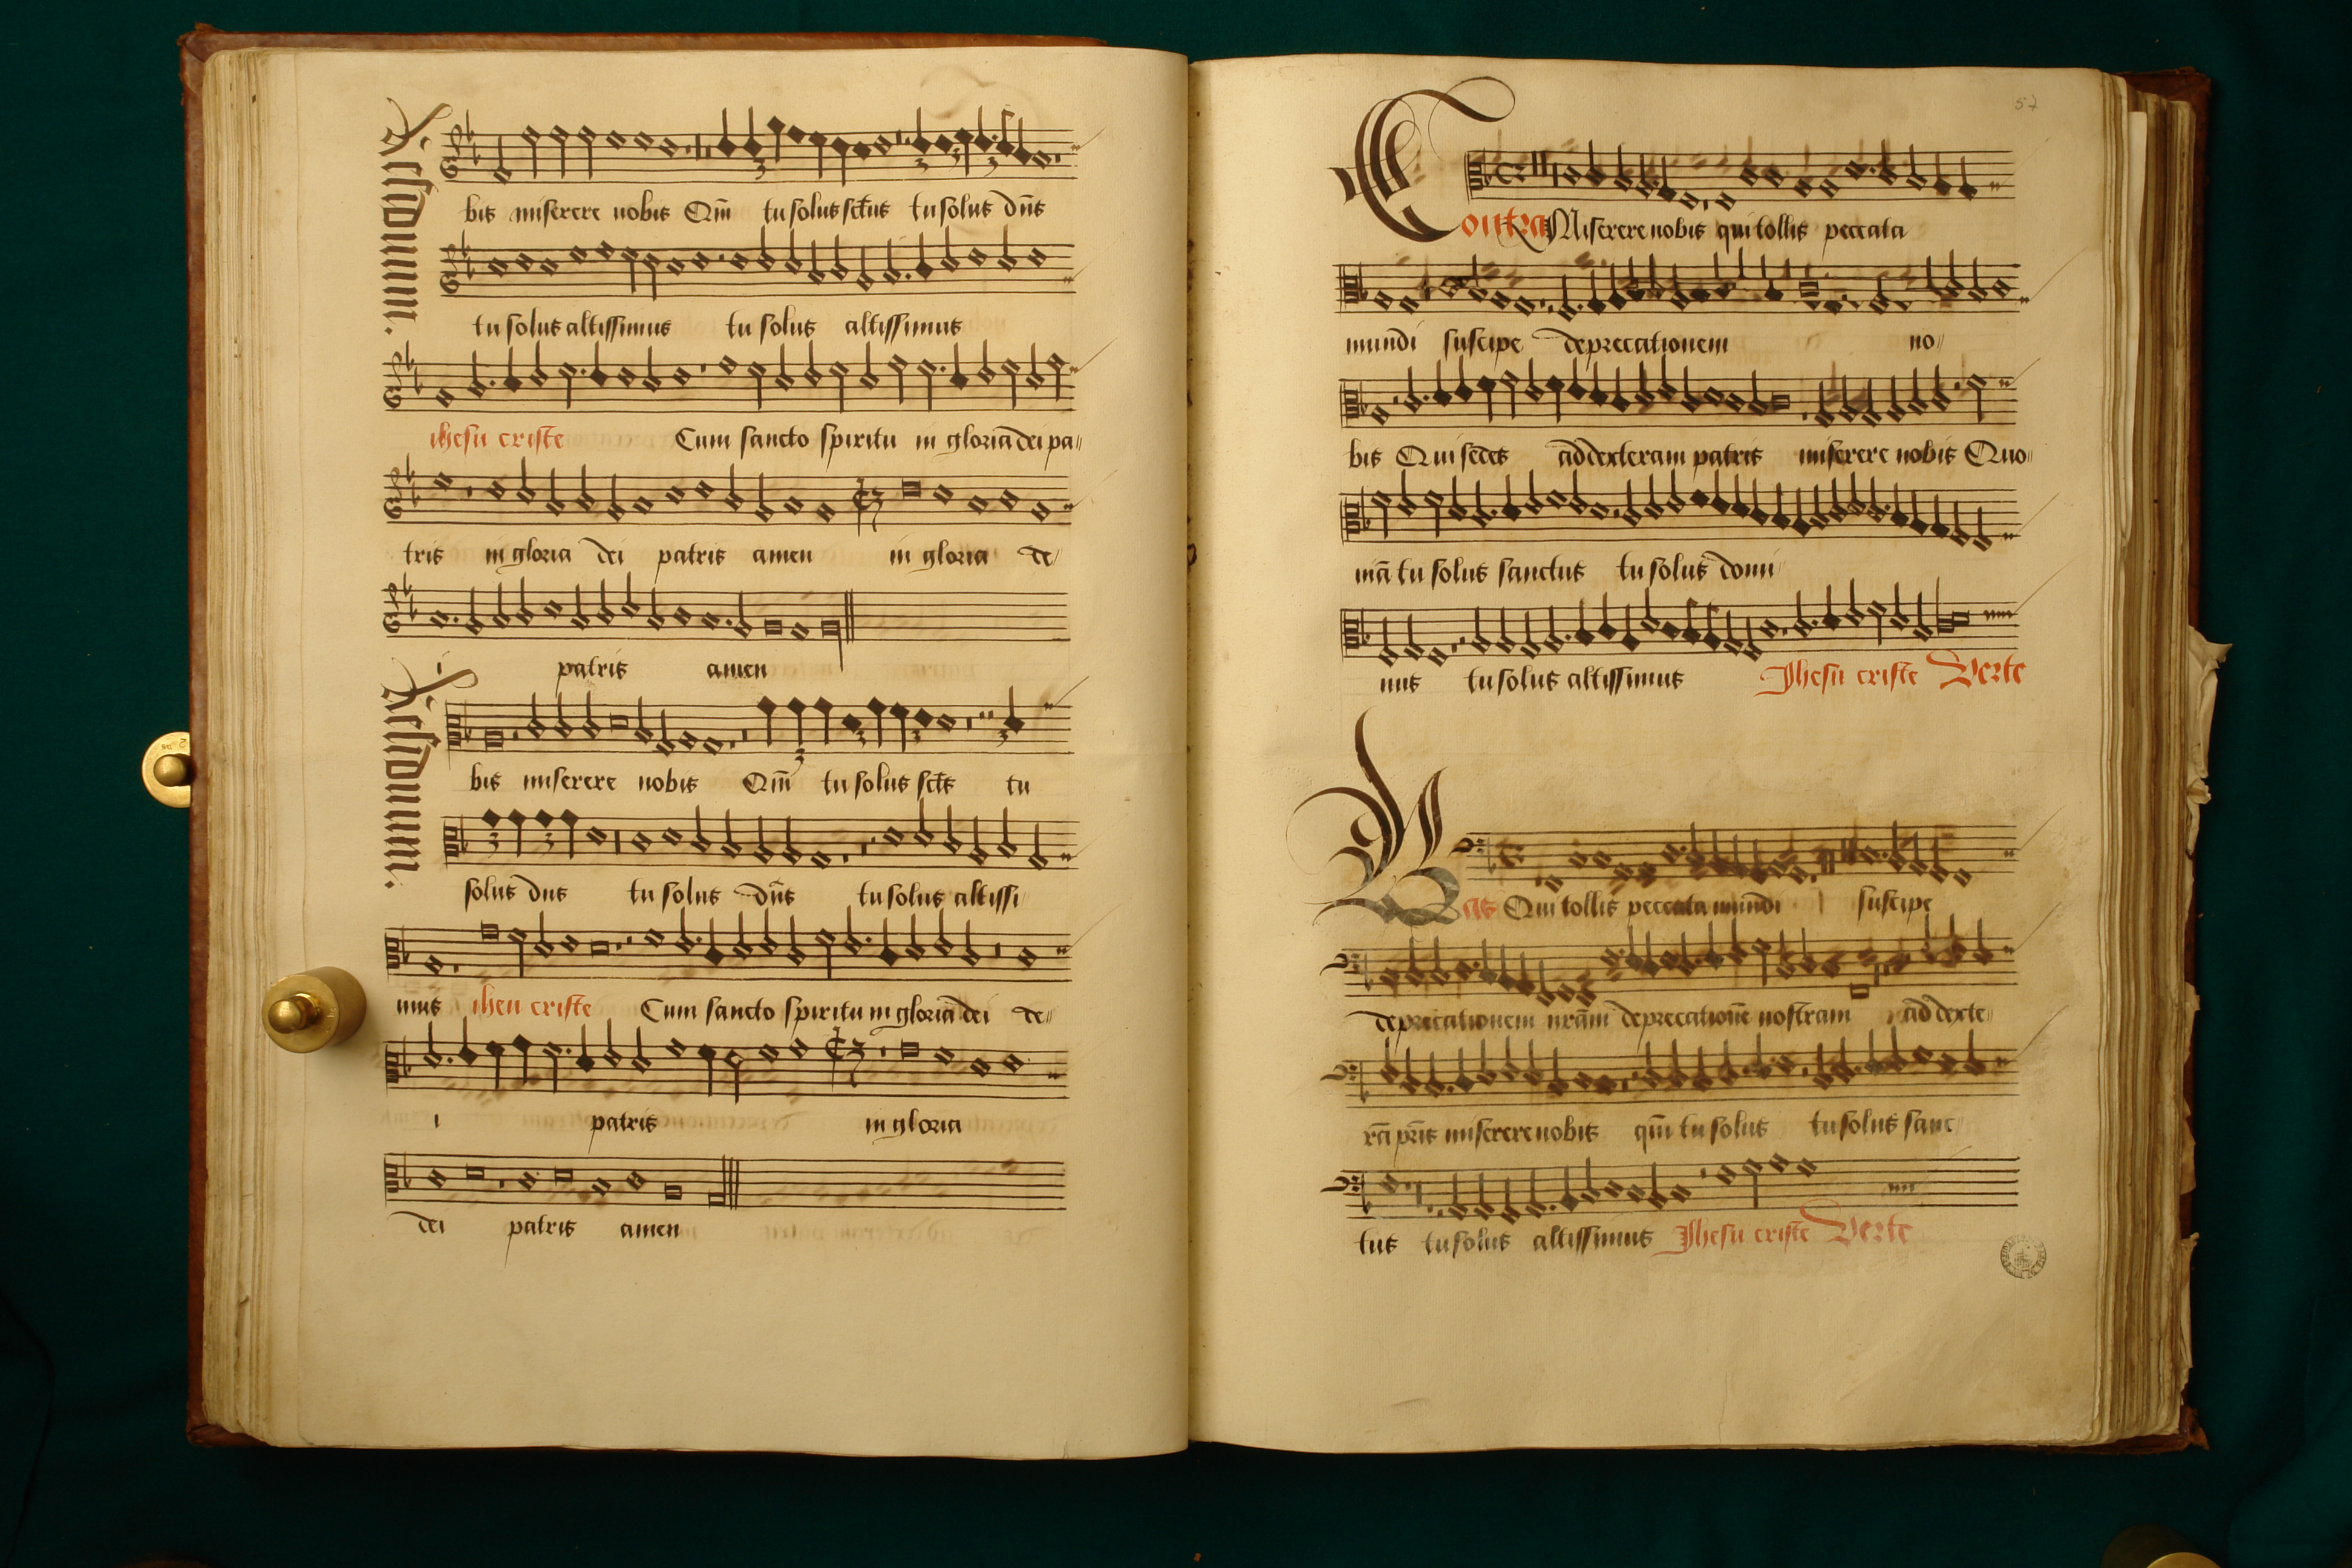 Residuum.
bis miserere nobis Qm̄ tu solus sct̄us tu solus dn̄s
tu solus altissimus tu solus altissimus
ihesu criste Cum sancto spiritu in gloria dei pa
tris in gloria dei patris amen in gloria de
i patris amen
Residuum.
bis miserere nobis Qm̄ tu solus sct̄s tu
solus dn̄s tu solus dn̄s tu solus altissi
mus ihesu criste Cum sancto spiritu in gloria dei de
i patris in gloria
dei patris amen
57
Contra Miserere nobis qui tollis peccata
mundi suscipe deprecationem no
bis Qui sedes ad dexteram patris miserere nobis Quo
niā tu solus sanctus tu solus domi
nus tu solus altissimus Jhesu criste Verte
Bas Qui tollis peccata mundi suscipe
deprecationem nr̄am deprecationē nostram ad dexte
rā pr̄is miserere nobis qm̄ tu solus tu solus sanc
tus tu solus altissimus Jhesu criste Verte